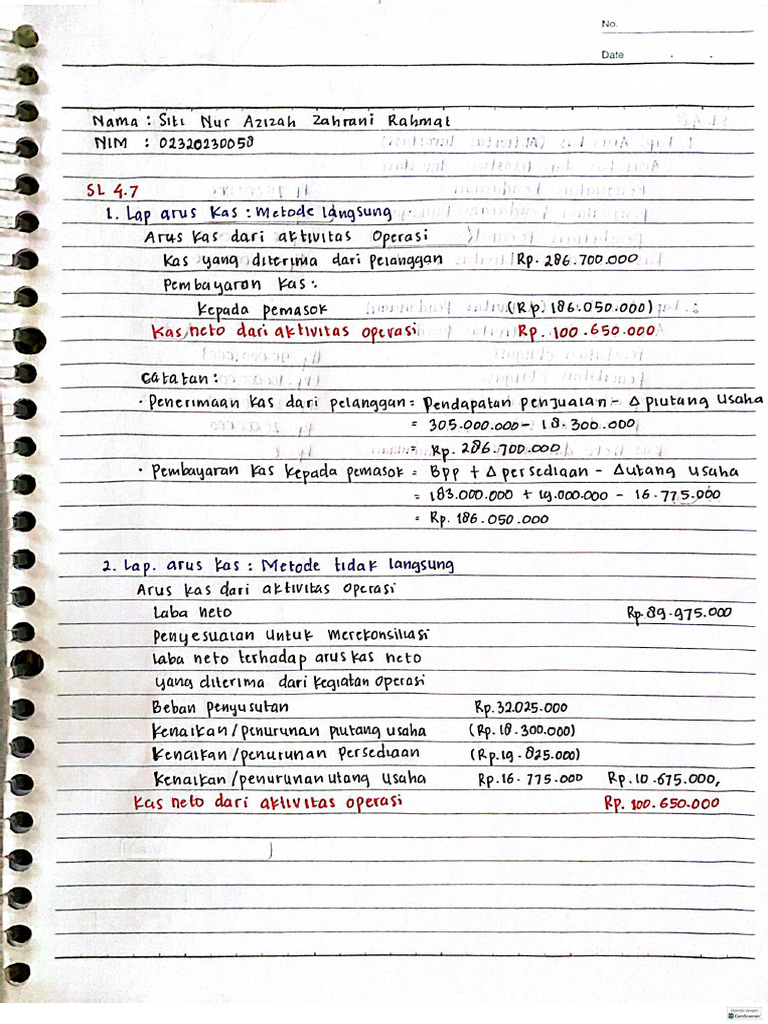 No.
Date
Nama : Siti Nur Azizah Zahrani Rahmat
NIM : 02320230058
SL 4.7
1. Lap arus kas : Metode langsung
Arus kas dari aktivitas Operasi
Kas yang diterima dari pelanggan Rp. 286.700.000
Pembayaran Kas :
Kepada pemasok (Rp. 186.050.000)
Kas neto dari aktivitas operasi Rp. 100.650.000
Catatan :
• Penerimaan kas dari pelanggan = Pendapatan penjualan - Δ piutang usaha
= 305.000.000 - 18.300.000
= Rp. 286.700.000
• Pembayaran kas kepada pemasok = Bpp + Δ persediaan - Δ utang usaha
= 183.000.000 + 19.000.000 - 16.775.000
= Rp. 186.050.000
2. Lap. arus kas : Metode tidak langsung
Arus kas dari aktivitas operasi
Laba neto Rp. 89.975.000
Penyesuaian untuk merekonsiliasi
laba neto terhadap arus kas neto
yang diterima dari kegiatan operasi
Beban penyusutan Rp. 32.025.000
Kenaikan / penurunan piutang usaha (Rp. 18.300.000)
Kenaikan / penurunan Persediaan (Rp. 19.825.000)
Kenaikan / penurunan utang usaha Rp. 16.775.000 Rp. 10.675.000,
Kas neto dari aktivitas operasi Rp. 100.650.000
CamScanner